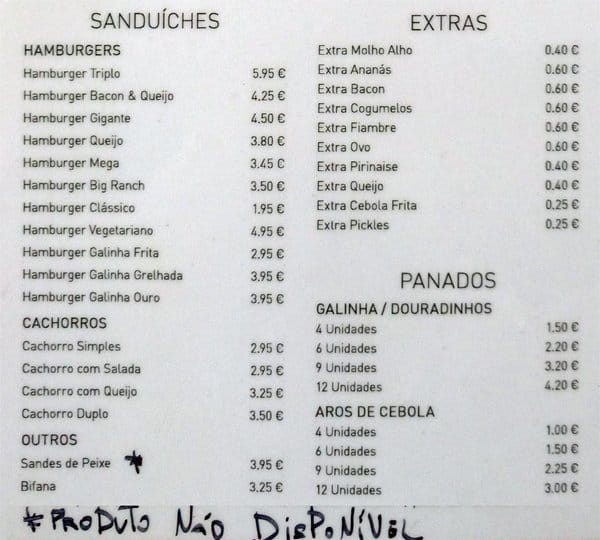 SANDUÍCHES
HAMBURGERS
Hamburger Triplo 5.95 €
Hamburger Bacon & Queijo 4.25 €
Hamburger Gigante 4.50 €
Hamburger Queijo 3.80 €
Hamburger Mega 3.45 €
Hamburger Big Ranch 3.50 €
Hamburger Clássico 1.95 €
Hamburger Vegetariano 4.95 €
Hamburger Galinha Frita 2.95 €
Hamburger Galinha Grelhada 3.95 €
Hamburger Galinha Ouro 3.95 €
CACHORROS
Cachorro Simples 2.95 €
Cachorro com Salada 2.95 €
Cachorro com Queijo 3.25 €
Cachorro Duplo 3.50 €
OUTROS
Sandes de Peixe * 3.95 €
Bifana 3.25 €
EXTRAS
Extra Molho Alho 0.40 €
Extra Ananás 0.60 €
Extra Bacon 0.60 €
Extra Cogumelos 0.60 €
Extra Fiambre 0.60 €
Extra Ovo 0.60 €
Extra Pirinaise 0.40 €
Extra Queijo 0.40 €
Extra Cebola Frita 0.25 €
Extra Pickles 0.25 €
PANADOS
GALINHA / DOURADINHOS
4 Unidades 1.50 €
6 Unidades 2.20 €
9 Unidades 3.20 €
12 Unidades 4.20 €
AROS DE CEBOLA
4 Unidades 1.00 €
6 Unidades 1.50 €
9 Unidades 2.25 €
12 Unidades 3.00 €
* PRODUTO NÃO DISPONÍVEL